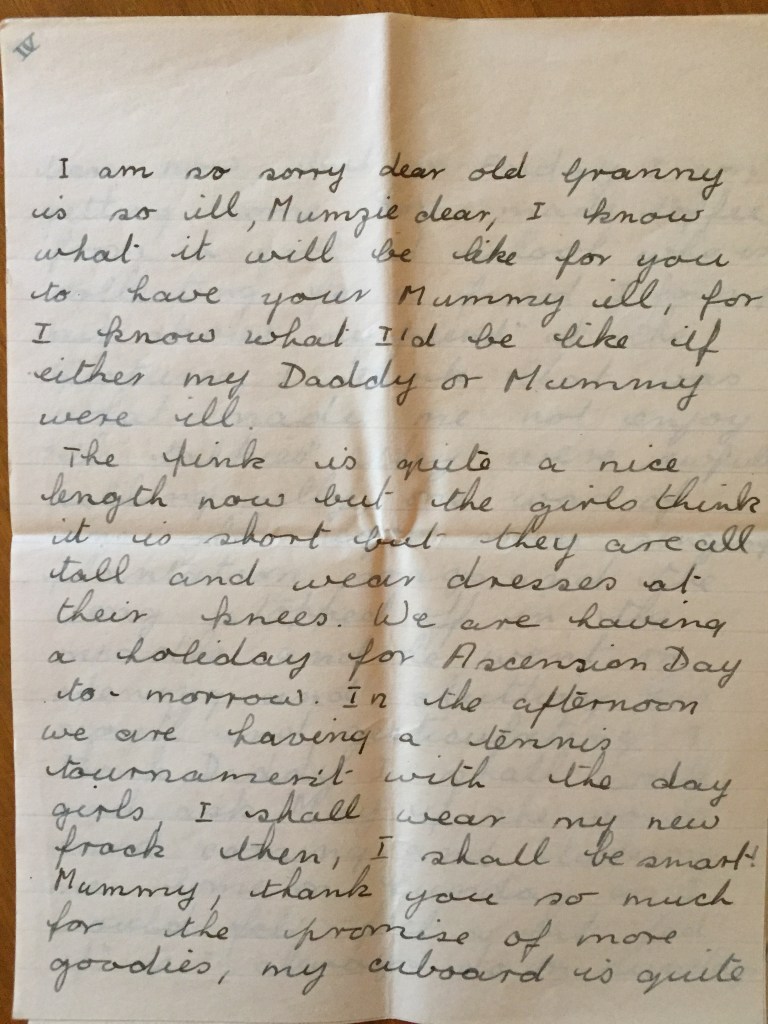 IV
I am so sorry dear old Granny
is so ill, Mumzie dear, I know
what it will be like for you
to have your Mummy ill, for
I know what I'd be like if
either my Daddy or Mummy
were ill.
The pink is quite a nice
length now but the girls think
it is short but they are all
tall and wear dresses at
their knees. We are having
a holiday for Ascension Day
to-morrow. In the afternoon
we are having a tennis
tournament with the day
girls, I shall wear my new
frock then, I shall be smart!
Mummy, thank you so much
for the promise of more
goodies, my cuboard is quite